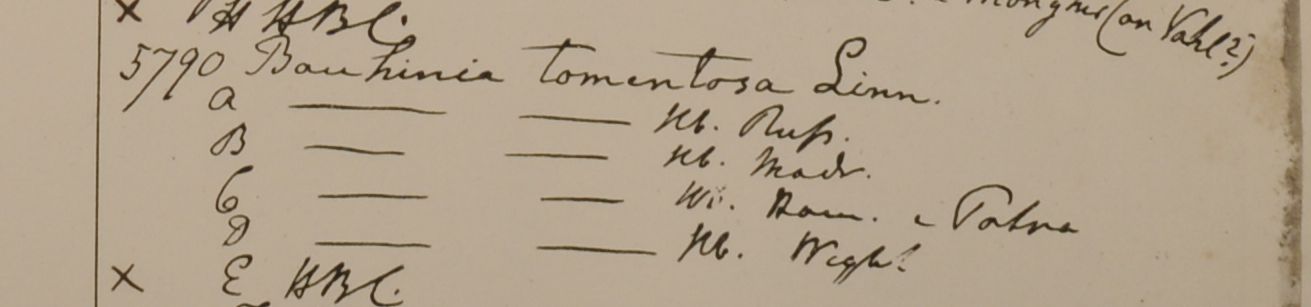 × H HBC. Monghir (an Vahl?)
5790 Bauhinia tomentosa Linn.
a — — Hb. Russ.
B — — Hb. Madr.
C — — Hb. Ham. e Patna
D — — Hb. Wight.
× E HBC.